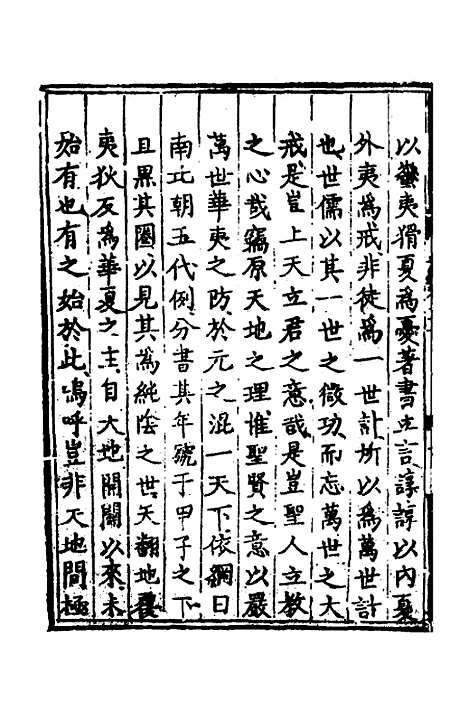 以蠻夷猾夏為憂著書立言諄諄以內夏
外夷為戒非徒為一世計所以為萬世計
也世儒以其一世之微功而忘萬世之大
戒是豈上天立君之意哉是豈聖人立教
之心哉竊原天地之理惟聖賢之意以嚴
萬世華夷之防於元之混一天下依綱目
南北朝五代例分書其年號于甲子之下
且黑其圈以見其為純陰之世天翻地覆
夷狄反為華夏之主自大地開闢以來未
始有也有之始於此嗚呼豈非天地間極